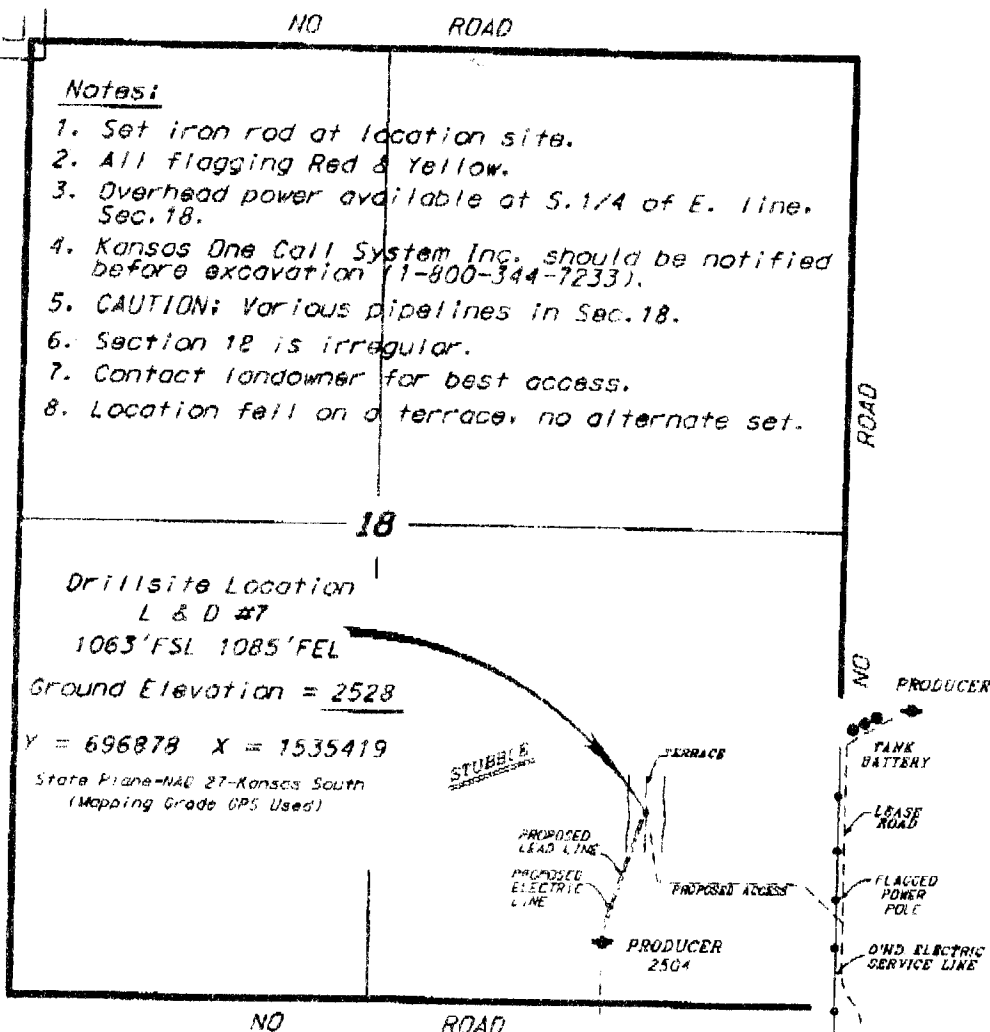 NO ROAD
Notes:
1. Set iron rod at location site.
2. All flagging Red & Yellow.
3. Overhead power available at S.1/4 of E. line,
Sec.18.
4. Kansas One Call System Inc. should be notified
before excavation (1-800-344-7233).
5. CAUTION: Various pipelines in Sec.18.
6. Section 18 is irregular.
7. Contact landowner for best access.
8. Location fell on a terrace, no alternate set.
ROAD
18
Drillsite Location
L & D #7
1063'FSL 1085'FEL
Ground Elevation = 2528
Y = 696878 X = 1535419
State Plane-NAD 27-Kansas South
(Mapping Grade GPS Used)
STUBBLE
TERRACE
PROPOSED
LEAD LINE
PROPOSED
ELECTRIC
LINE
PROPOSED ACCESS
PRODUCER
2504
NO
PRODUCER
TANK
BATTERY
LEASE
ROAD
FLAGGED
POWER
POLE
O'HD ELECTRIC
SERVICE LINE
NO ROAD